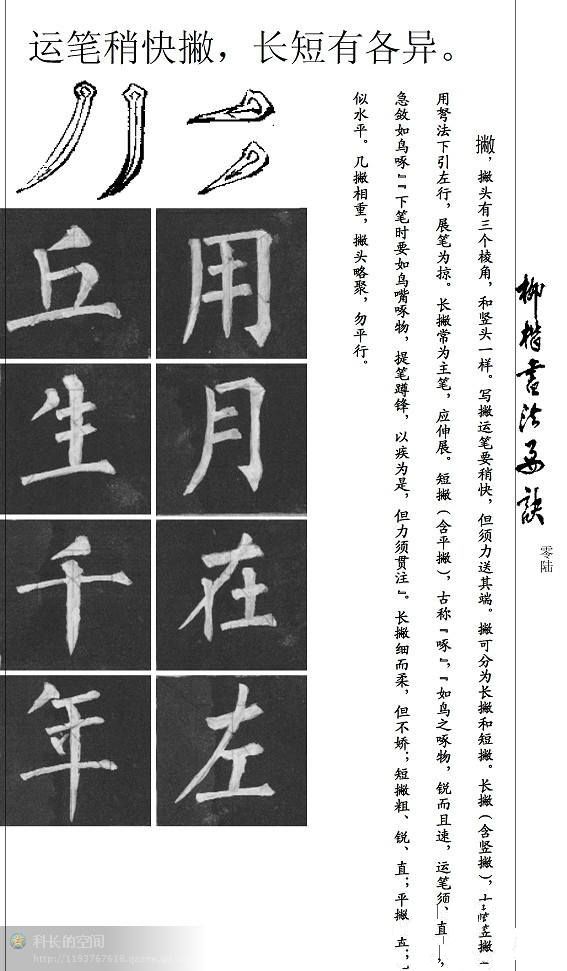 运笔稍快撇，长短有各异。
柳楷书法要诀
零陆
撇，撇头有三个棱角，和竖头一样。写撇运笔要稍快，但须力送其端。撇可分为长撇和短撇。长撇（含竖撇），
用努法下引左行，展笔为掠。长撇常为主笔，应伸展。短撇（含平撇），古称『啄』，『如鸟之啄物，锐而且速，运笔须、直
急敛如鸟啄』『下笔时要如鸟嘴啄物，提笔蹲锋，以疾为是，但力须贯注』。长撇细而柔，但不娇；短撇粗、锐、直；平撇
似水平。几撇相重，撇头略聚，勿平行。
用月在左
乒生千年
科长的空间